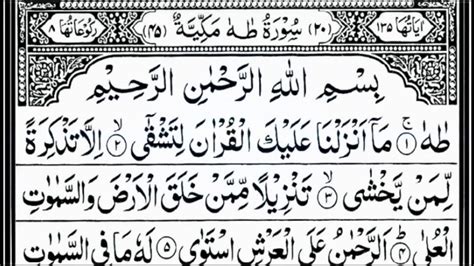 اٰيَاتُهَا ١٣٥ (٢٠) سُوْرَةُ طٰهٰ مَكِّيَّةٌ (٤٥) رُكُوْعَاتُهَا ٨
بِسْمِ اللّٰهِ الرَّحْمٰنِ الرَّحِيْمِ
طٰهٰ ۚ ۝١ مَاۤ اَنْزَلْنَا عَلَيْكَ الْقُرْاٰنَ لِتَشْقٰۤى ۙ ۝٢ اِلَّا تَذْكِرَةً
لِّمَنْ يَّخْشٰى ۙ ۝٣ تَنْزِيْلًا مِّمَّنْ خَلَقَ الْاَرْضَ وَالسَّمٰوٰتِ
الْعُلٰى ؕ ۝٤ اَلرَّحْمٰنُ عَلَى الْعَرْشِ اسْتَوٰى ۝٥ لَهٗ مَا فِى السَّمٰوٰتِ